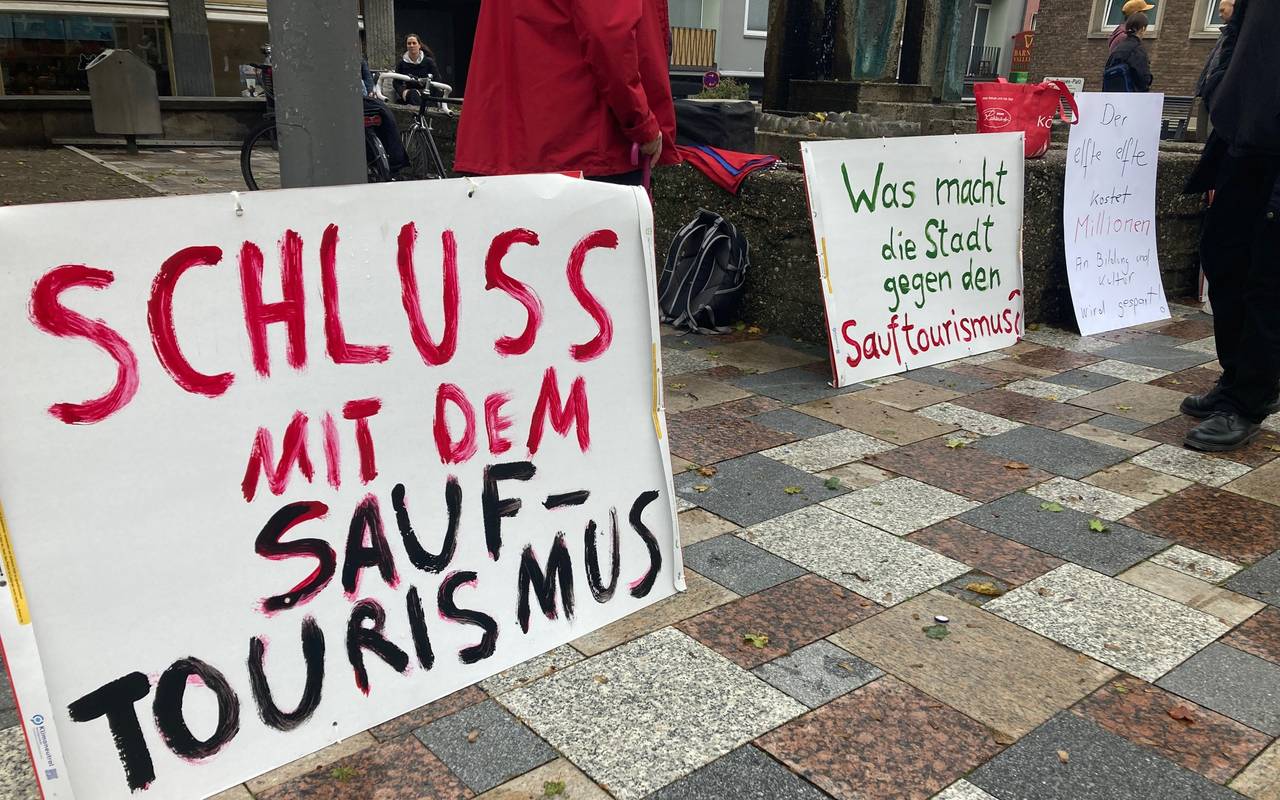 SCHLUSS
MIT DEM
SAUF-
TOURISMUS
Klimaneutral
Was macht
die Stadt
gegen den
Sauftourismus?
Der
elfte elfte
kostet
Millionen
An Bildung und
Kultur
wird gespart!
KÖ